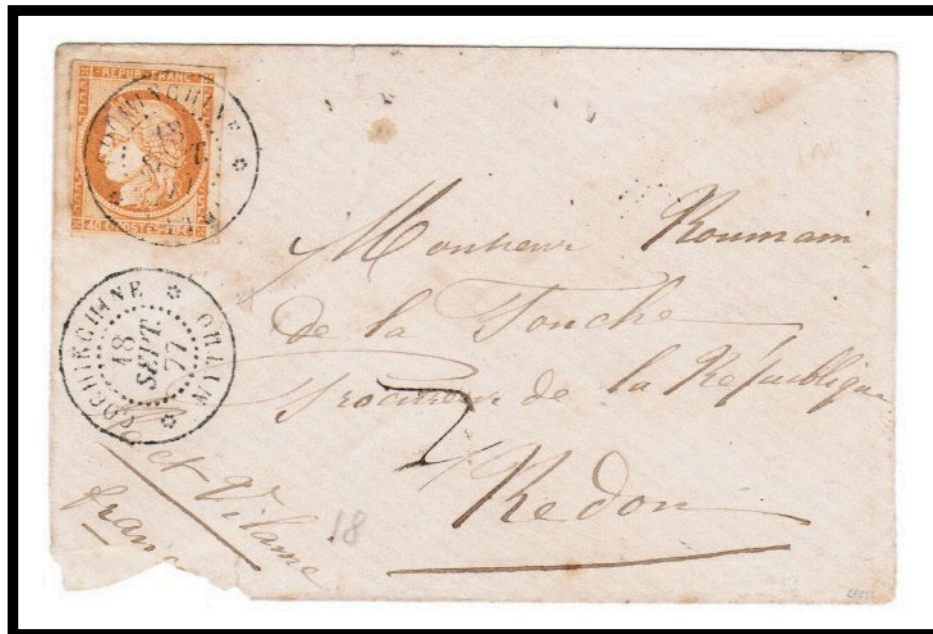 REPUB · FRANC
40 C · POSTES · 40 C
COCHINCHINE
COCHINCHINE
18
SEPT.
77
Monsieur Roumain
de la Touche
Procureur de la République
Redon
et Vilaine
france
18